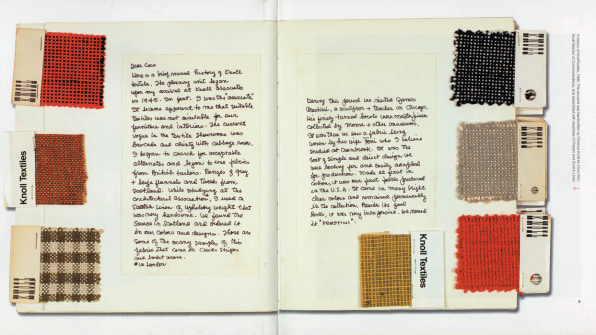 Dear Coco
Here is a brief casual history of Knoll
Textiles. The
upon my arrival at Knoll Associates
in 1945. In fact. I was the "associate"
It became apparent to me that suitable
textiles was not available for our
furniture and interiors. The current
vogue in the Textile Showrooms was
brocade and chintz with cabbage roses.
I began to search for acceptable
alternates and began to use fabrics
from British tailors. Range of grey
+ beige flannels and tweeds from
Scotland. While studying at the
Architectural Association, I used a
Scottish linen of upholstery weight that
was very handsome. We found the
source in Scotland and ordered it
in our colors and designs. These are
some of the many samples of this
fabric that came in checks stripes
and
* in London
During this period we visited James
Prestini, a sculptor + teacher in Chicago.
His finely turned bowls were
collected by Moma + other museums.
It was then we saw a fabric
woven by his wife
studio at Cranbrook. It was the
sort of simple and direct design we
was looking for and easily adapted
for production. Made at first in
cotton, it was our first fabric produced
in the U.S.A. It came in many bright
clear colors and remained permanently
in the collection. Besides its good
looks, it was very inexpensive. We named
it "PRESTINI".
Knoll Textiles
Knoll Textiles